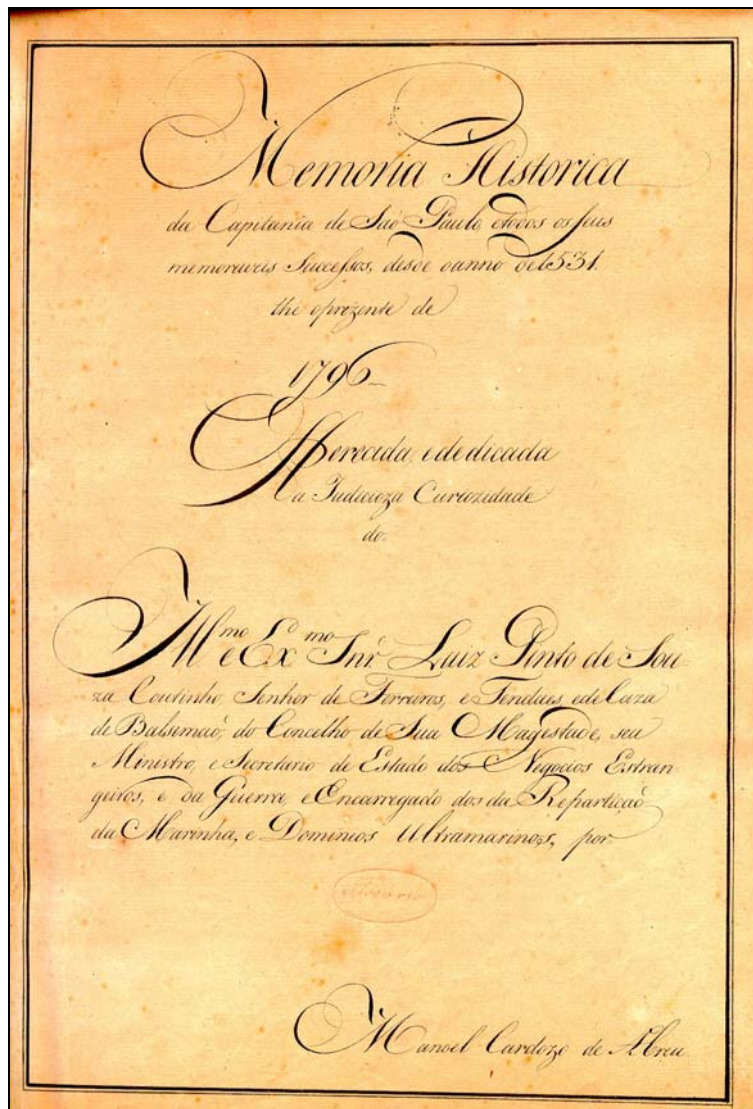 Memoria Historica
da Capitania de São Paulo, e todos os seus
memoraveis Successos, desde o anno de 1531.
the o prezente de
1796
Offerecida, e dedicada
a Judicioza Curiozidade
do.
Ill.mo e Ex.mo Snr. Luiz Pinto de Sou-
za Coutinho, Senhor de Ferreiros, e Tendaes, e de Caza
de Balsemaõ, do Concelho de Sua Magestade, seu
Ministro, e Secretario de Estado dos Negocios Estran-
geiros, e da Guerra, e Encarregado dos da Repartiçaõ
da Marinha, e Dominios Ultramarinos, por
Manoel Cardozo de Abreu